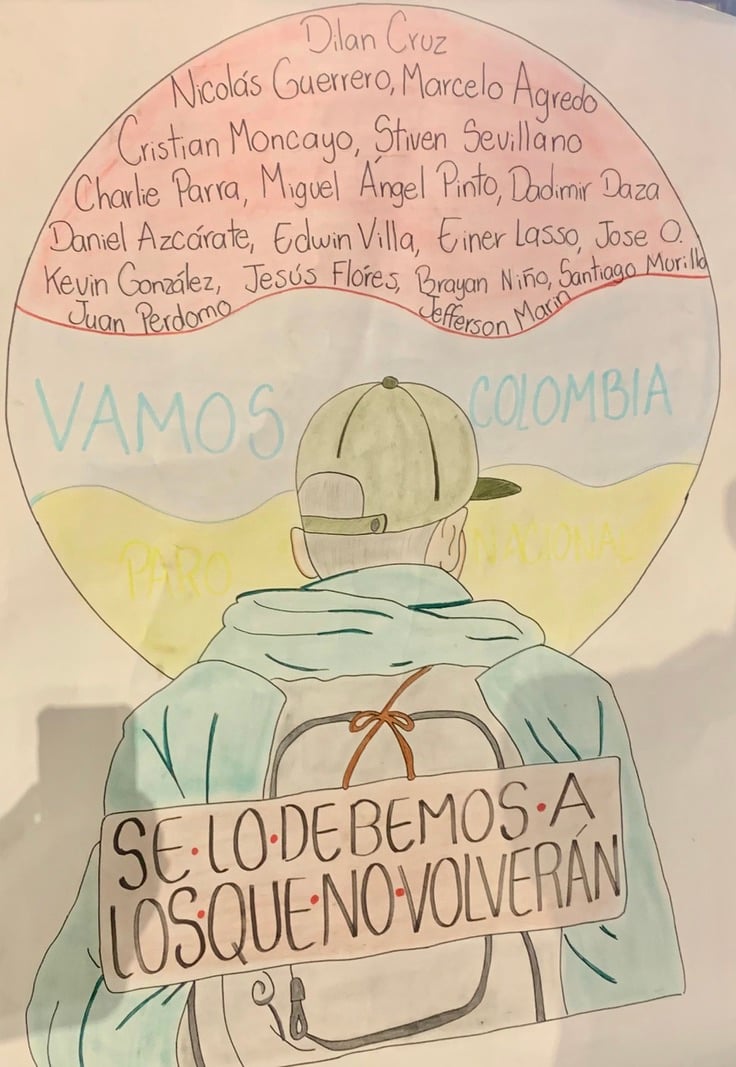 Dilan Cruz
Nicolás Guerrero, Marcelo Agredo
Cristian Moncayo, Stiven Sevillano
Charlie Parra, Miguel Ángel Pinto, Dadimir Daza
Daniel Azcárate, Edwin Villa, Einer Lasso, Jose O.
Kevin González, Jesús Flores, Brayan Niño, Santiago Murillo
Juan Perdomo Jefferson Marin
VAMOS COLOMBIA
PARO NACIONAL
SE·LO·DEBEMOS·A
LOS·QUE·NO·VOLVERÁN